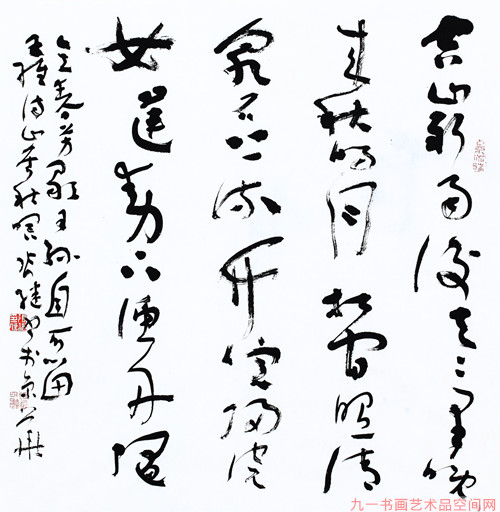 空山新雨後天氣晚
來秋明月松間照清
泉石上流竹喧歸浣
女蓮動下漁舟隨
意春芳歇王孫自可留
王維詩山居秋暝 於京華
九一书画艺术品空间网